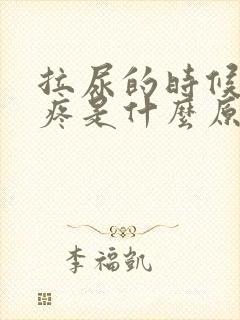 拉尿的時候
疼是什麼原
李福凱